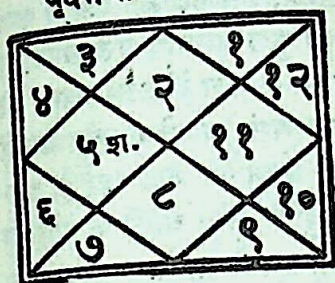 ३ १
४ २ १२
५ श. ११
६ ८ १०
७ ९